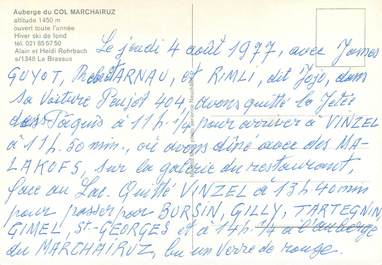 Auberge du COL MARCHAIRUZ
altitude 1450 m
ouvert toute l'année
Hiver ski de fond
tél. 021 85 57 50
Alain et Heidi Rohrbach
s/1348 Le Brassus
Le jeudi 4 août 1977, avec James
GUYOT, Robert ARNAU, et RIMLI, dit Jeje, dans
sa voiture Peujot 404, avons quitté la Jetée
des Pâquis à 11h. pour arriver à VINZEL
à 11h. 50 min., où avons dîné avec des MA-
LAKOFS, sur la galerie du restaurant,
face au Lac. Quitté VINZEL à 13h40mm
pour passer par BURSIN, GILLY, TARTEGNIN
GIMEL, ST-GEORGES et à 14h. 1/4 à l'auberge
du MARCHAIRUZ, bu un verre de rouge.